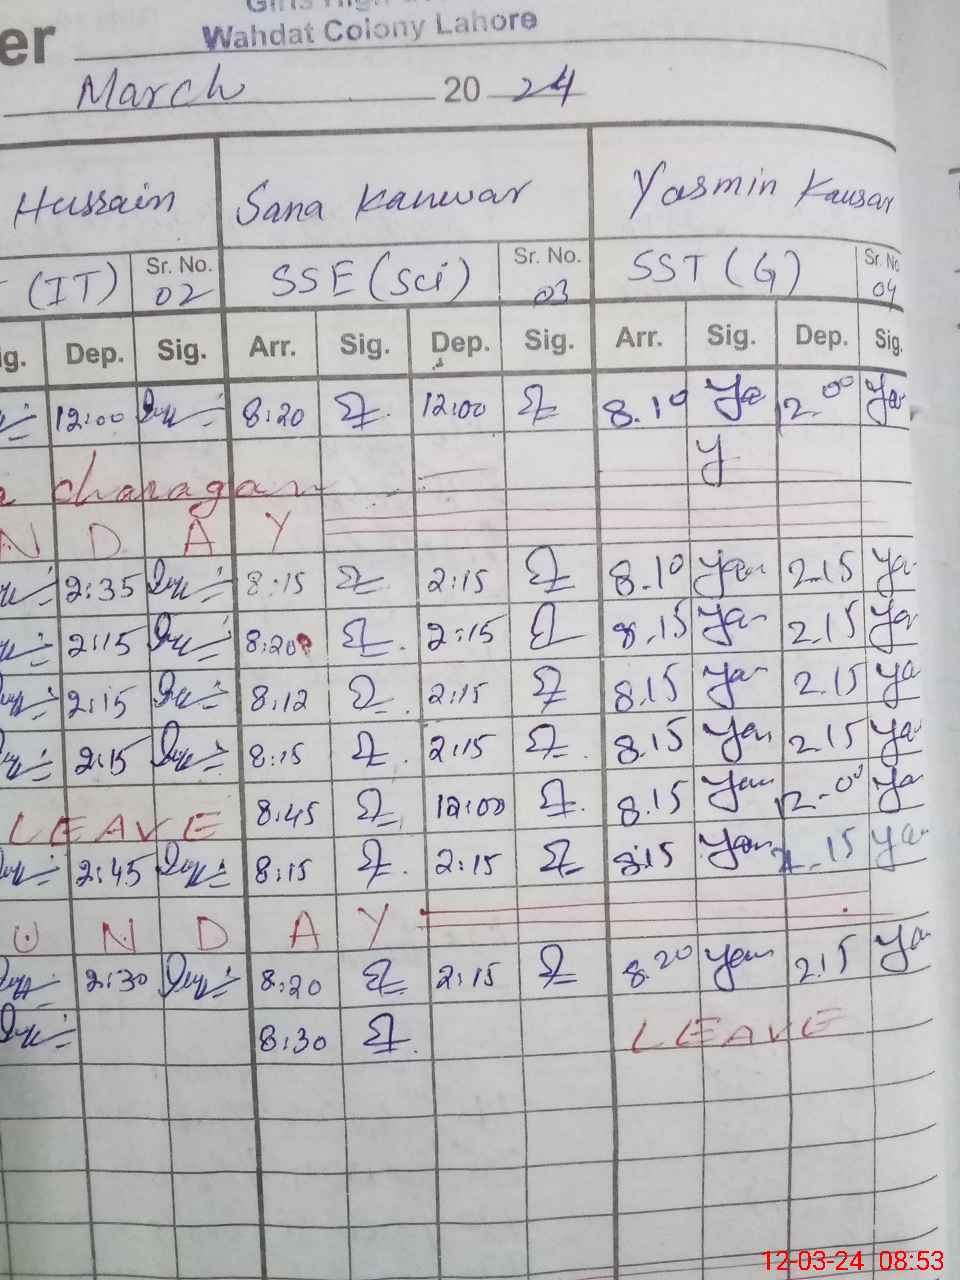 Girls High
Wahdat Colony Lahore
er
March 20 24
Hussain Sana Kanwar Yasmin Kausar
(IT) Sr. No. 02 SSE (Sci) Sr. No. 03 SST (G) Sr. No 04
ig. Dep. Sig. Arr. Sig. Dep. Sig. Arr. Sig. Dep. Sig.
12:00 8:20 12:00 8.10 Ya 12.00 Ya
charagan Y
N D A Y
2:35 8:15 2:15 8.10 Yan 2.15 Ya
2:15 8:20 2:15 8.15 Ya 2.15 Ya
2:15 8:12 2:15 8.15 Ya 2.15 Ya
2:15 8:15 2:15 8.15 Yan 2.15 Ya
LEAVE 8:45 12:00 8.15 Yan 12.00 Ya
2:45 8:15 2:15 8:15 Yan 2.15 Ya
U N D A Y
2:30 8:20 2:15 8.20 Yan 2.15 Ya
8:30 LEAVE
12-03-24 08:53